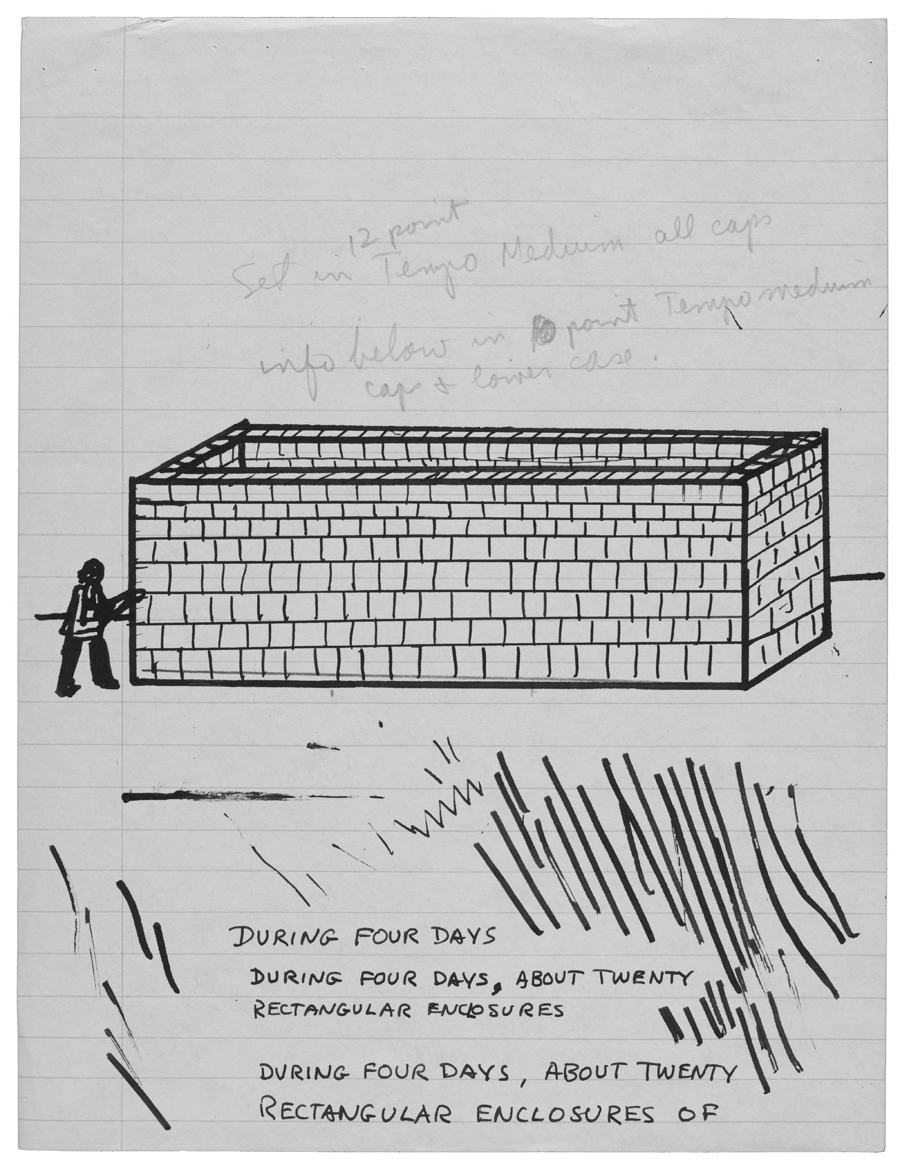 12 point
Set in Tempo Medium all caps
info below in 10 point Tempo medium
caps & lower case.
DURING FOUR DAYS
DURING FOUR DAYS, ABOUT TWENTY
RECTANGULAR ENCLOSURES
DURING FOUR DAYS, ABOUT TWENTY
RECTANGULAR ENCLOSURES OF